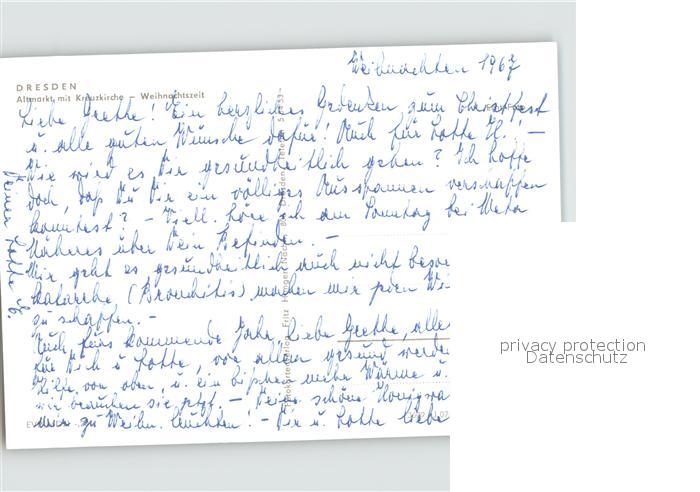 Weihnachten 1967
DRESDEN
Altmarkt mit Kreuzkirche – Weihnachtszeit
Liebe Grethe! Ein herzliches Gedenken zum Christfest
u. alle guten Wünsche dafür! Auch für Lotte H.! –
Wie wird es Dir gesundheitlich gehen? Ich hoffe
doch, daß Du Dir ein völliges Ausspannen verschaffen
konntest? – Viell. höre ich am Sonntag bei Meta
Näheres über Dein Befinden. –
Mir geht es gesundheitlich auch nicht beson
katarrhe (Bronchitis) machen mir
zu schaffen. –
Auch fürs kommende Jahr, liebe Grethe, alles
für Dich u. Lotte, vor allem gesund werden
Hilfe von oben, u. ein bißchen mehr Wärme u.
wir brauchen sie jetzt. – Deine schöne
mir zu Weihn. leuchten! – Dir u. Lotte liebe
Deiner Lotte E.
privacy protection
Datenschutz